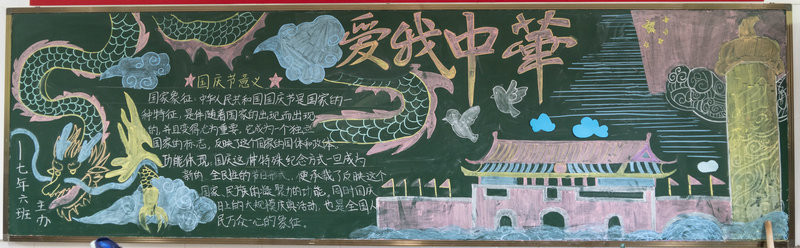 爱我中華
★国庆节意义★
国家象征：中华人民共和国国庆节是国家的一
种特征，是伴随着国家的出现而出现
的，并且变得尤为重要。它成为一个独立
国家的标志，反映这个国家的国体和政体。
功能体现：国庆这种特殊纪念方式一旦成为
新的、全民性的节日形式，便承载了反映这个
国家、民族的凝聚力的功能，同时国庆
日上的大规模庆典活动，也是全国人
民万众一心的象征。
——七年六班
主办